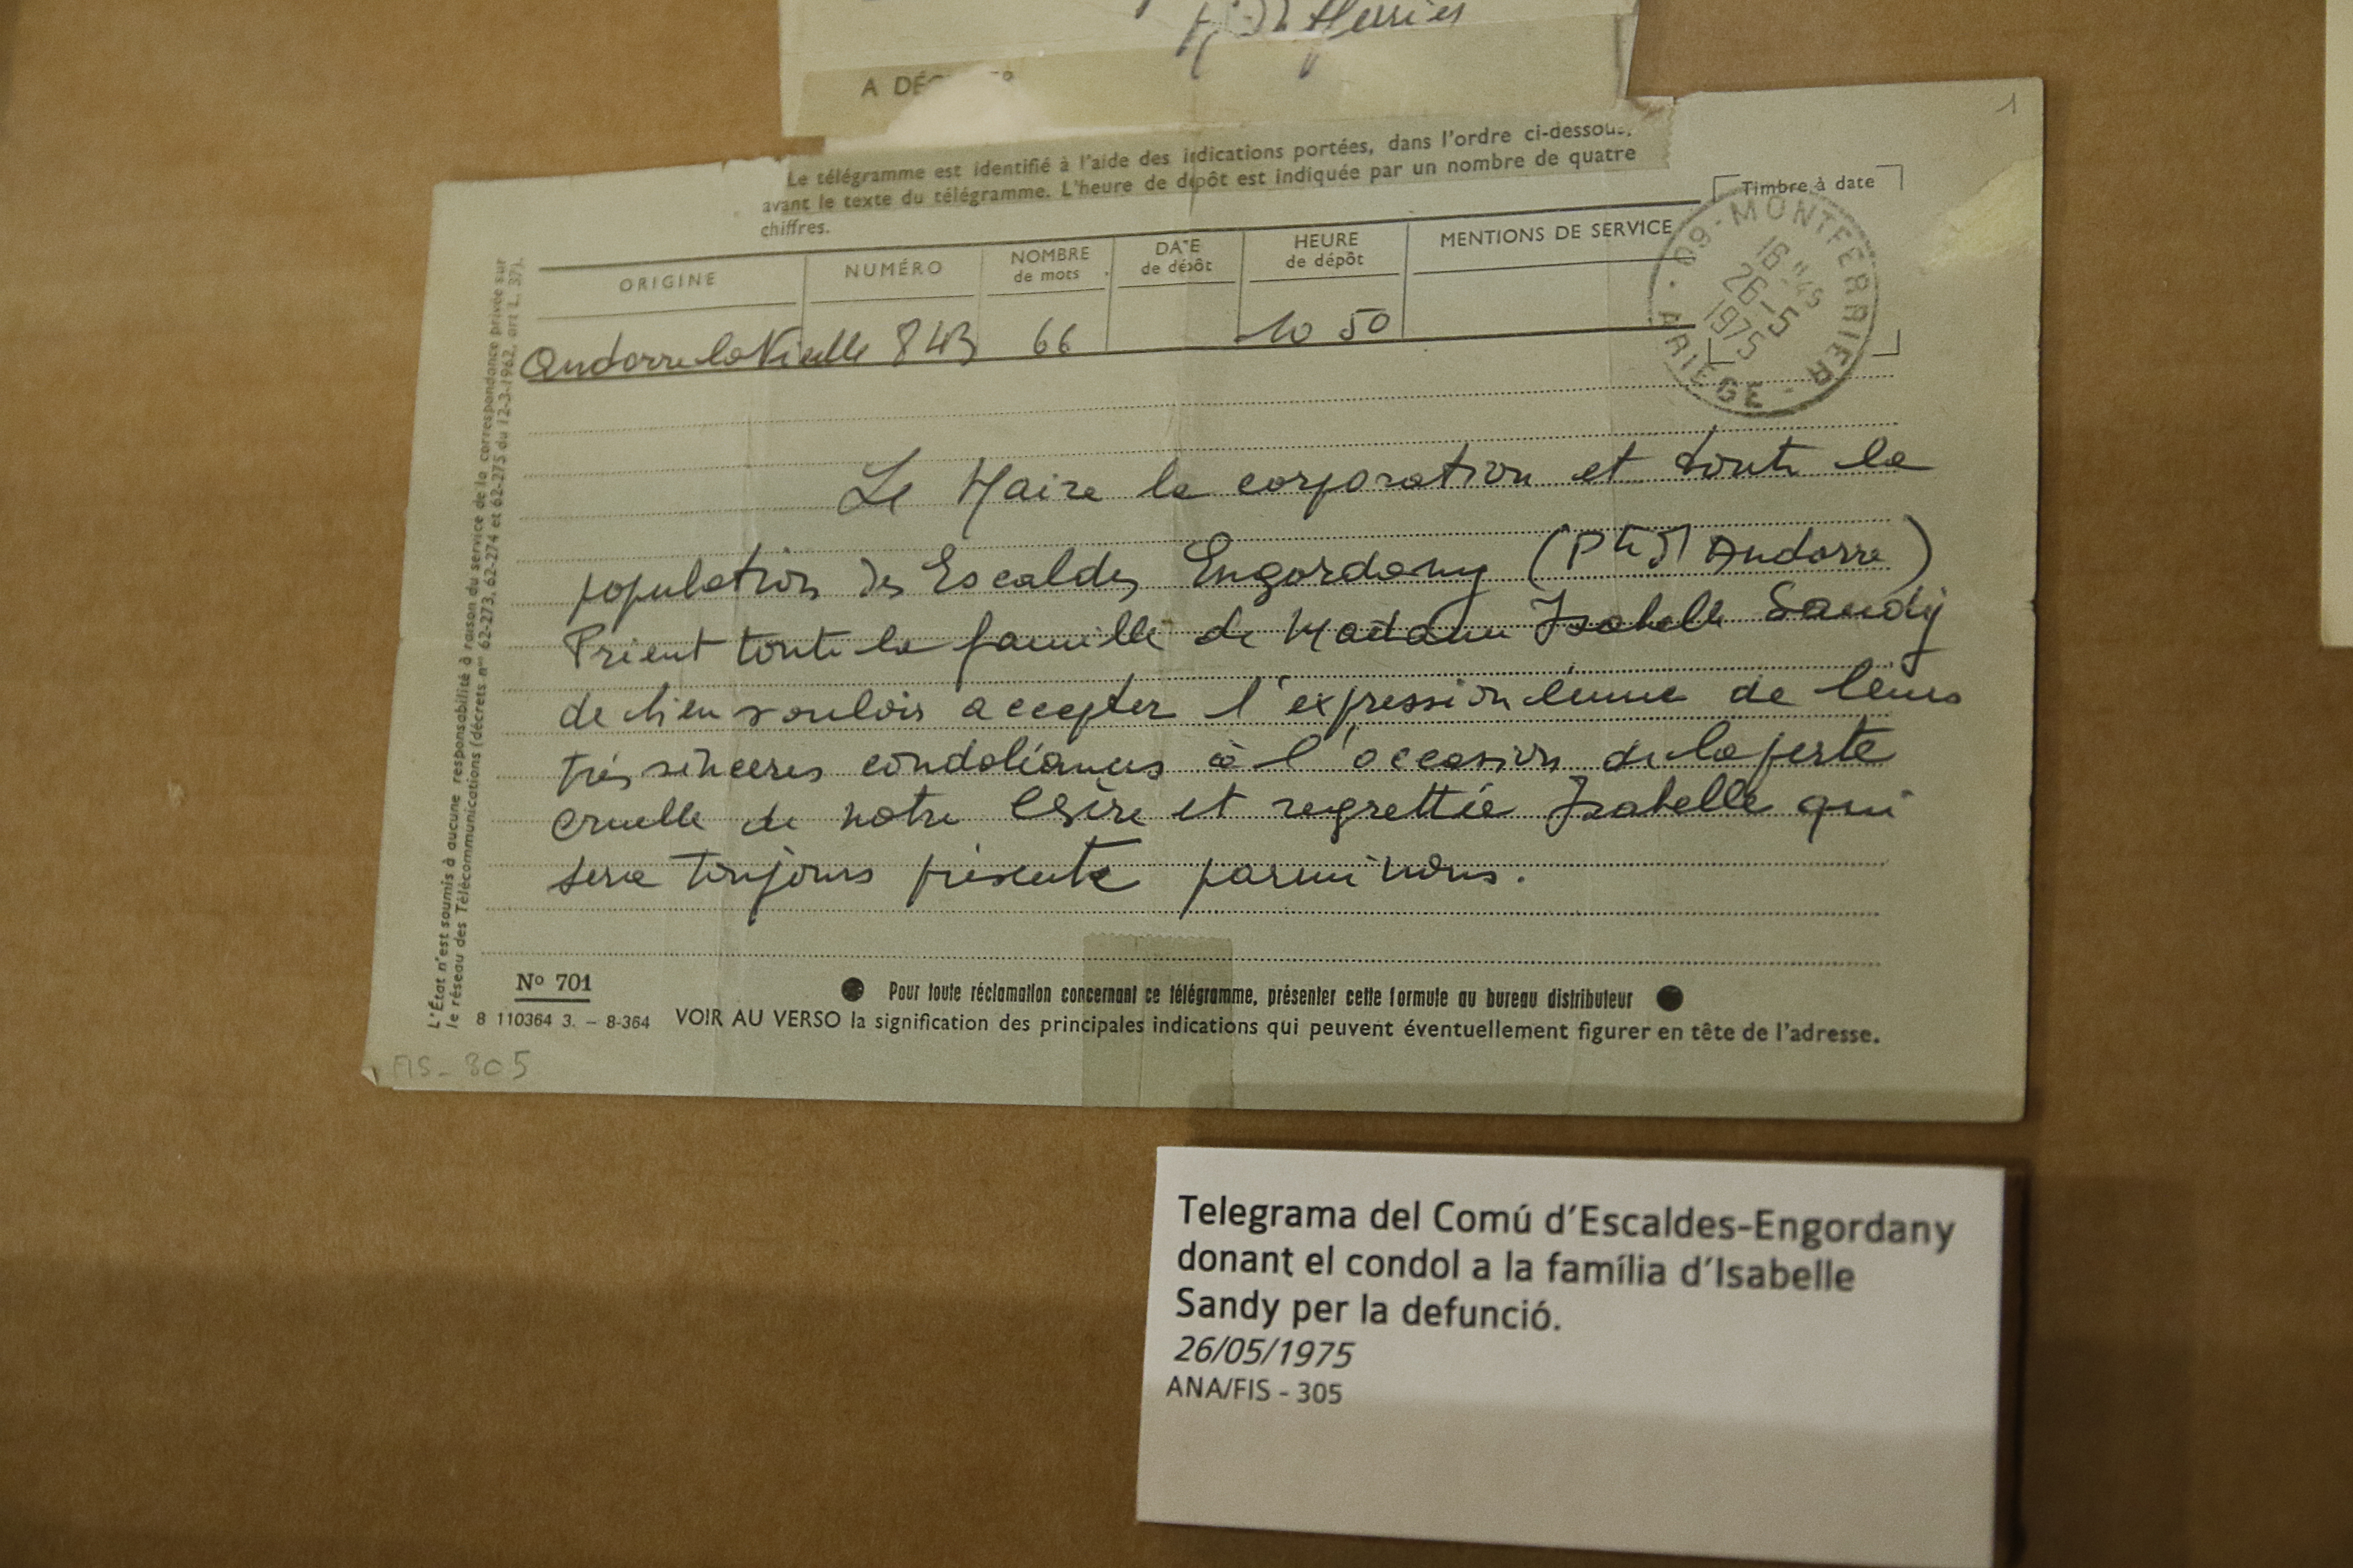 A DÉ
Le télégramme est identifié à l'aide des indications portées, dans l'ordre ci-dessous,
avant le texte du télégramme. L'heure de dépôt est indiquée par un nombre de quatre
chiffres.
1
Timbre à date
09 - MONTFERRIER
16 H 45
26-5
1975
ARIEGE
ORIGINE NUMÉRO NOMBRE de mots DATE de dépôt HEURE de dépôt MENTIONS DE SERVICE
Andorre la Vieille 843 66 10 50
Le Maire la corporation et toute la
population des Escaldes Engordany (Pté d'Andorre)
Prient toute la famille de Madame Isabelle Sandy
de bien vouloir accepter l'expression émue de leurs
très sincères condoléances à l'occasion de la perte
cruelle de notre chère et regrettée Isabelle qui
sera toujours présente parmi nous.
L'État n'est soumis à aucune responsabilité à raison du service de la correspondance privée sur
le réseau des Télécommunications (décrets nos 62-273, 62-274 et 62-275 du 12-3-1962, art L. 37).
No 701
Pour toute réclamation concernant ce télégramme, présenter cette formule au bureau distributeur
8 110364 3. - 8-364 VOIR AU VERSO la signification des principales indications qui peuvent éventuellement figurer en tête de l'adresse.
FIS-305
Telegrama del Comú d'Escaldes-Engordany
donant el condol a la família d'Isabelle
Sandy per la defunció.
26/05/1975
ANA/FIS - 305